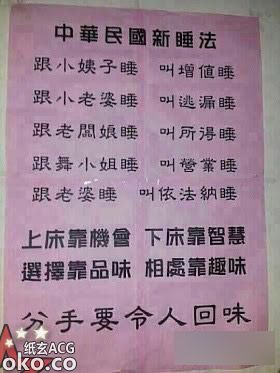 中華民國新睡法
跟小姨子睡 叫增值睡
跟小老婆睡 叫逃漏睡
跟老闆娘睡 叫所得睡
跟舞小姐睡 叫營業睡
跟老婆睡 叫依法納睡
上床靠機會 下床靠智慧
選擇靠品味 相處靠趣味
分手要令人回味
纸玄ACG
oko.co